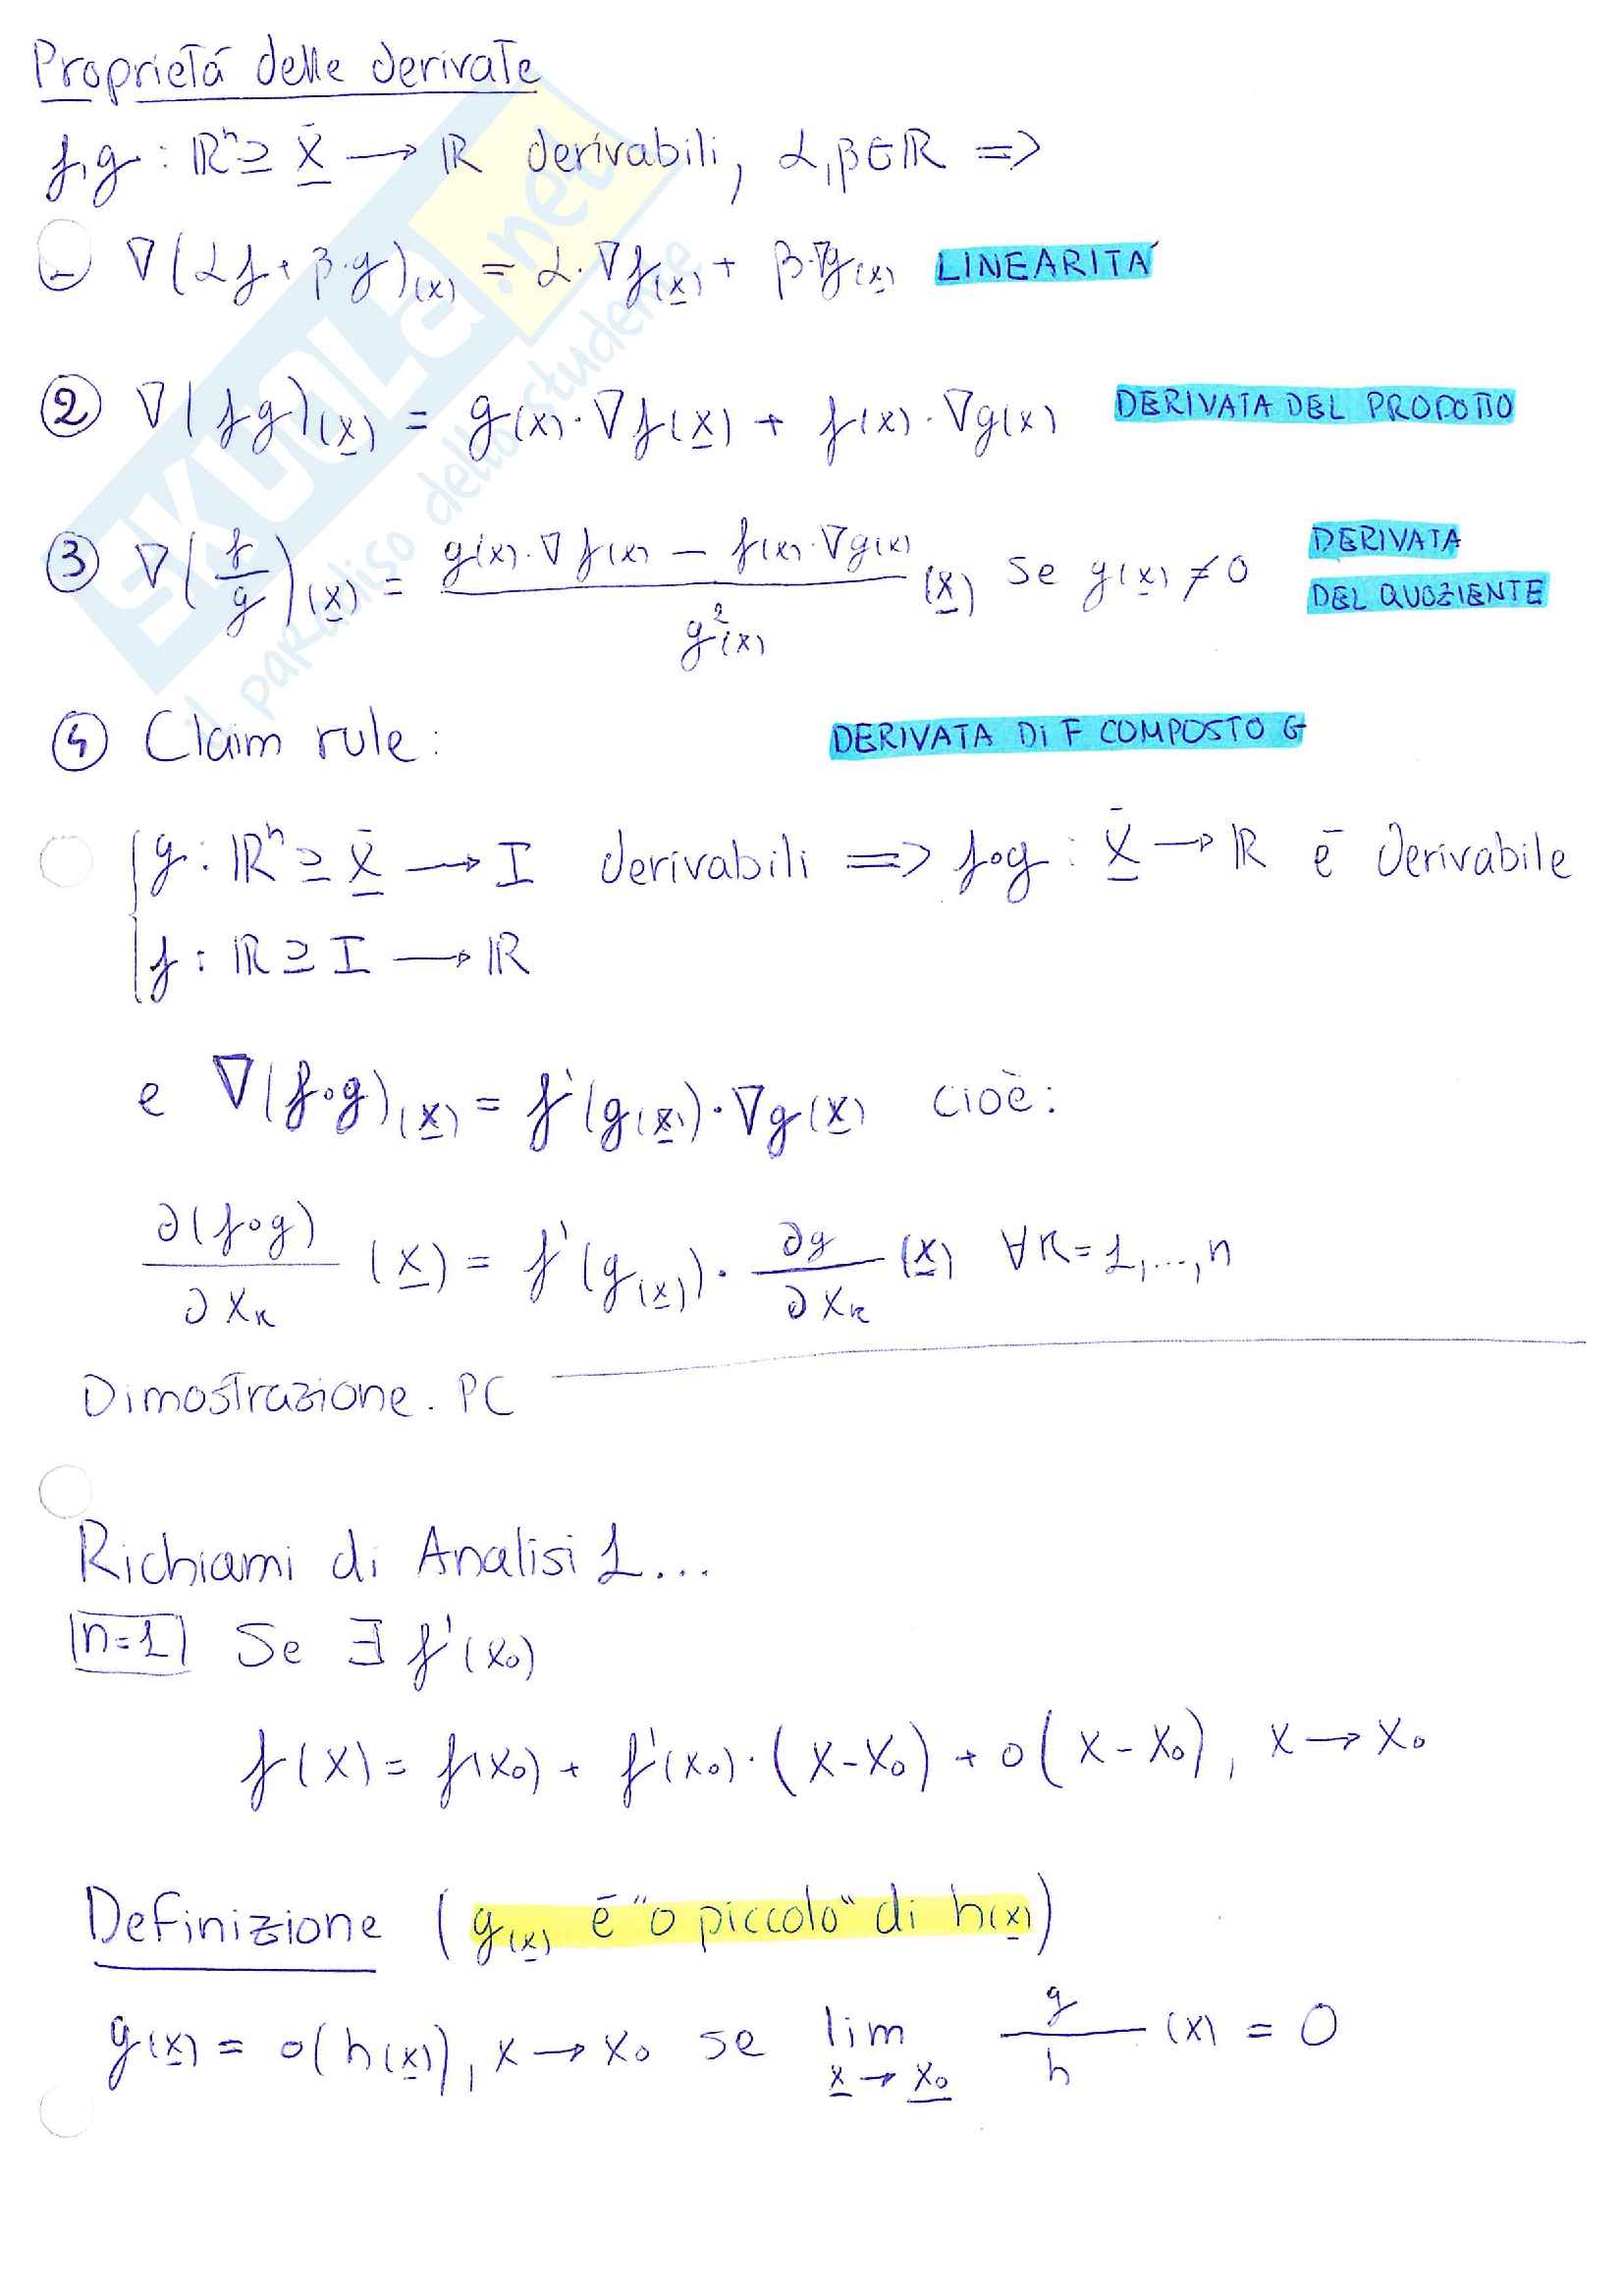 Proprietá delle derivate
f,g : ℝⁿ ⊇ X̲ → ℝ derivabili, α,β∈ℝ =>
∇(αf + β·g)(x) = α·∇f(x̲) + β·∇g(x̲) LINEARITÁ
② ∇(fg)(x̲) = g(x)·∇f(x̲) + f(x)·∇g(x) DERIVATA DEL PRODOTTO
③ ∇(f/g)(x̲) = (g(x)·∇f(x) − f(x)·∇g(x))/g²(x) (x̲) se g(x̲) ≠ 0 DERIVATA
DEL QUOZIENTE
④ Claim rule: DERIVATA Di F COMPOSTO G
{ g : ℝⁿ ⊇ X̲ → I derivabili => f∘g : X̲ → ℝ é derivabile
f : ℝ ⊇ I → ℝ
e ∇(f∘g)(x̲) = f'(g(x̲))·∇g(x̲) cioè:
∂(f∘g)/∂xₖ (x̲) = f'(g(x̲))·∂g/∂xₖ (x̲) ∀k=1,...,n
Dimostrazione. PC
Richiami di Analisi 1...
n=1 Se ∃ f'(x₀)
f(x) = f(x₀) + f'(x₀)·(x-x₀) + o(x-x₀), x → x₀
Definizione (g(x̲) é "o piccolo" di h(x̲))
g(x̲) = o(h(x̲)), x → x₀ se lim x̲→x̲₀ g/h (x) = 0
SKUOLA.net
il paradiso dello studente